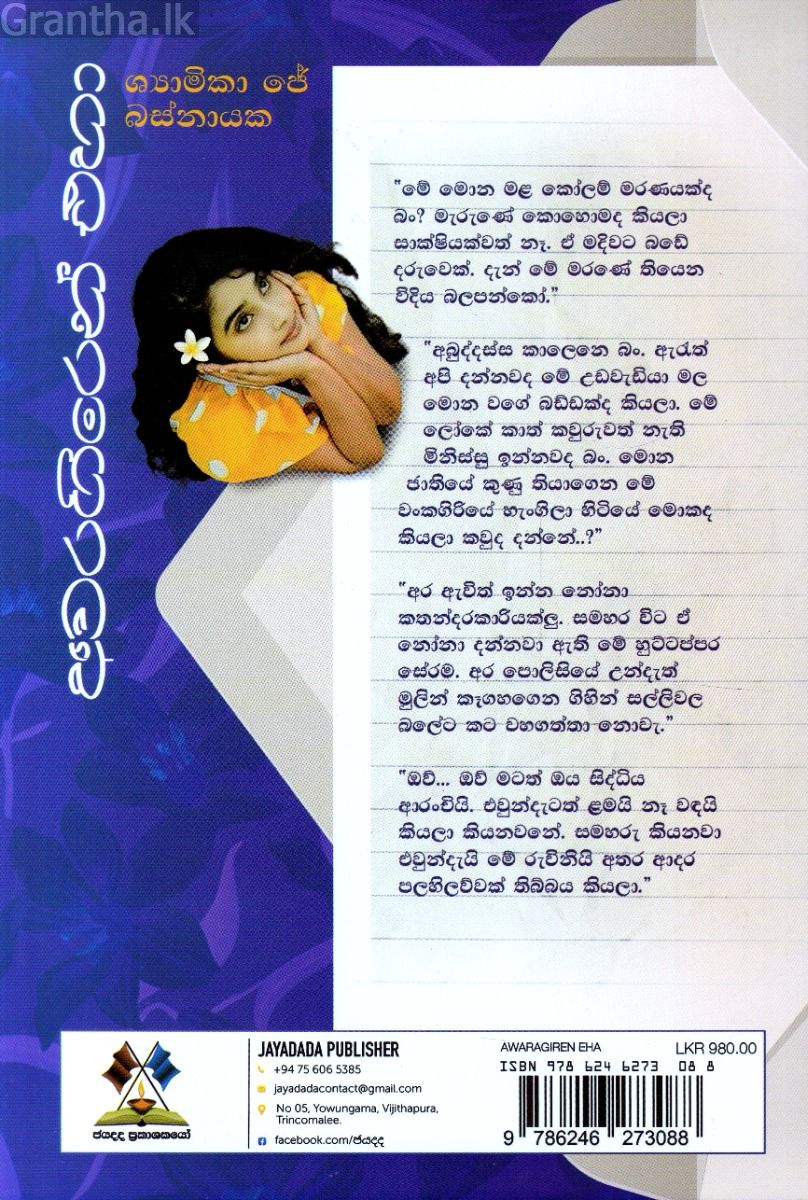 Grantha.lk
ශ්‍යාමිකා ජේ
බස්නායක
අවරගිරෙන් එහා
"මේ මොන මළ කෝලම් මරණයක්ද
බං? මැරුණේ කොහොමද කියලා
සාක්ෂියක්වත් නෑ. ඒ මදිවට බඩේ
දරුවෙක්. දැන් මේ මරණේ තියෙන
විදිය බලපන්කෝ."
"අබුද්දස්ස කාලෙනෙ බං. ඇරැත්
අපි දන්නවද මේ උඩවැඩියා මල
මොන වගේ බඩ්ඩක්ද කියලා. මේ
ලෝකේ කාත් කවුරුවත් නැති
මිනිස්සු ඉන්නවද බං. මොන
ජාතියේ කුණු තියාගෙන මේ
වංකගිරියේ හැංගිලා හිටියේ මොකද
කියලා කවුද දන්නේ..?"
"අර ඇවිත් ඉන්න නෝනා
කතන්දරකාරියක්ලු. සමහර විට ඒ
නෝනා දන්නවා ඇති මේ හුට්ටප්පර
සේරම. අර පොලිසියේ උන්දැත්
මුලින් කෑගහගෙන ගිහින් සල්ලිවල
බලේට කට වහගත්තා නොවැ."
"ඔව්... ඔව් මටත් ඔය සිද්ධිය
ආරංචියි. එවුන්දැටත් ළමයි නෑ වඳයි
කියලා කියනවනේ. සමහරු කියනවා
එවුන්දැයි මේ රුවිනියි අතර ආදර
පලහිලව්වක් තිබ්බය කියලා."
ජයදද ප්‍රකාශකයෝ
JAYADADA PUBLISHER
+94 75 606 5385
jayadadacontact@gmail.com
No 05, Yowungama, Vijithapura,
Trincomalee.
facebook.com/ජයදද
AWARAGIREN EHA
LKR 980.00
ISBN 978 624 6273 08 8
9 786246 273088